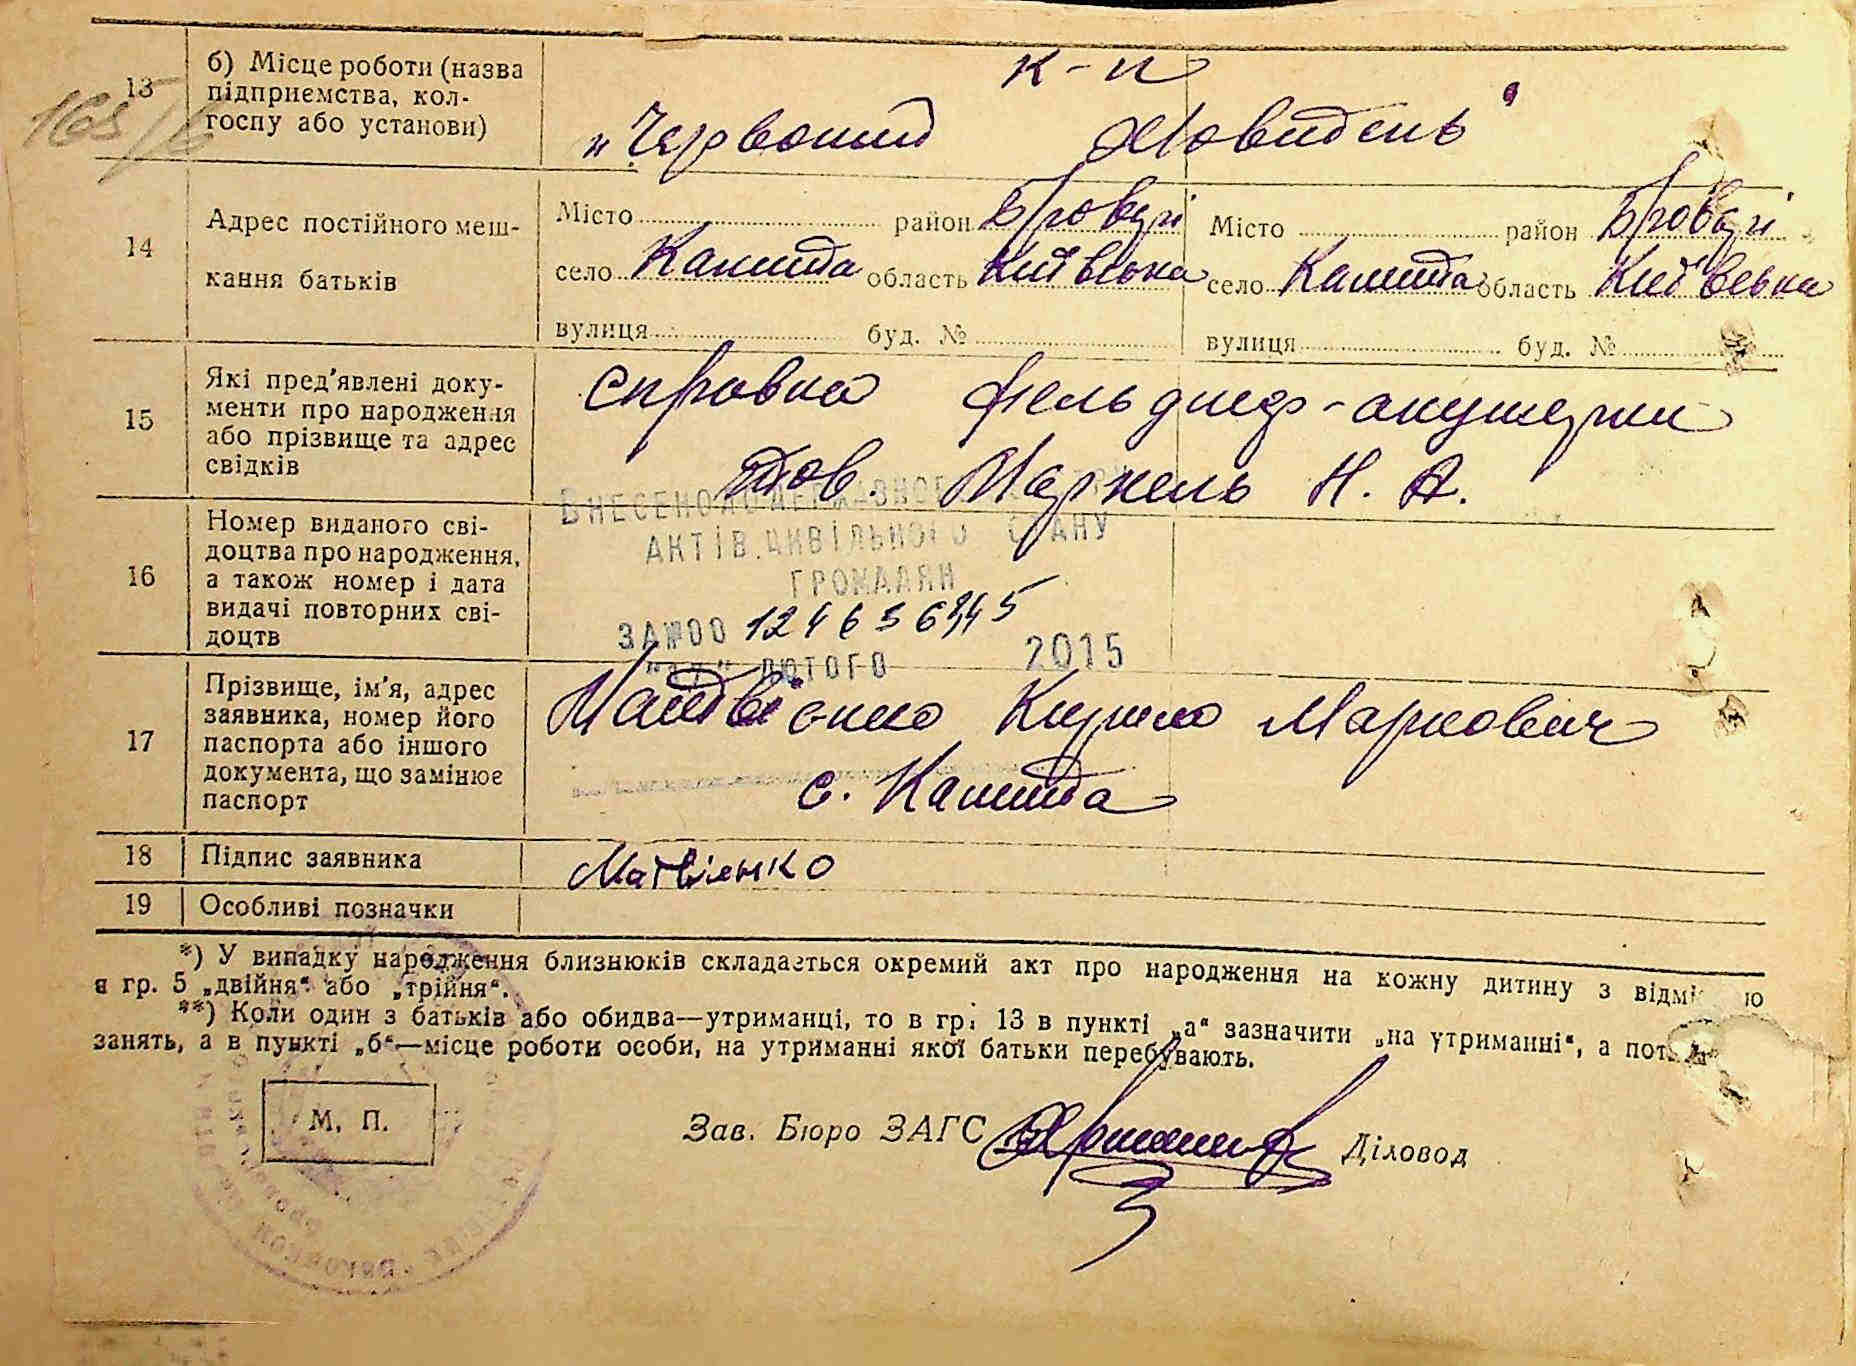 165/16
13
б) Місце роботи (назва
підприємства, кол-
госпу або установи)
к-п
„Червоний Жовтень"
14
Адрес постійного меш-
кання батьків
Місто район Бровари
село Калита область Київська
вулиця буд. №
Місто район Бровари
село Калита область Київська
вулиця буд. №
15
Які пред'явлені доку-
менти про народження
або прізвище та адрес
свідків
справка фельдшер-акушерки
тов. Маркель Н. А.
16
Номер виданого сві-
доцтва про народження,
а також номер і дата
видачі повторних сві-
доцтв
ВНЕСЕНО ДО ДЕРЖАВНОГО
АКТІВ ЦИВІЛЬНОГО СТАНУ
ГРОМАДЯН
ЗА №00
ЛЮТОГО 2015
17
Прізвище, ім'я, адрес
заявника, номер його
паспорта або іншого
документа, що замінює
паспорт
Матвієнко Кирило Маркович
с. Калита
18 Підпис заявника
Матвієнко
19 Особливі позначки
*) У випадку народження близнюків складається окремий акт про народження на кожну дитину з
в гр. 5 „двійня“ або „трійня“.
**) Коли один з батьків або обидва—утриманці, то в гр. 13 в пункті „а“ зазначити „на утриманні“, а
занять, а в пункті „б“—місце роботи особи, на утриманні якої батьки перебувають.
М. П.
Зав. Бюро ЗАГС
Діловод